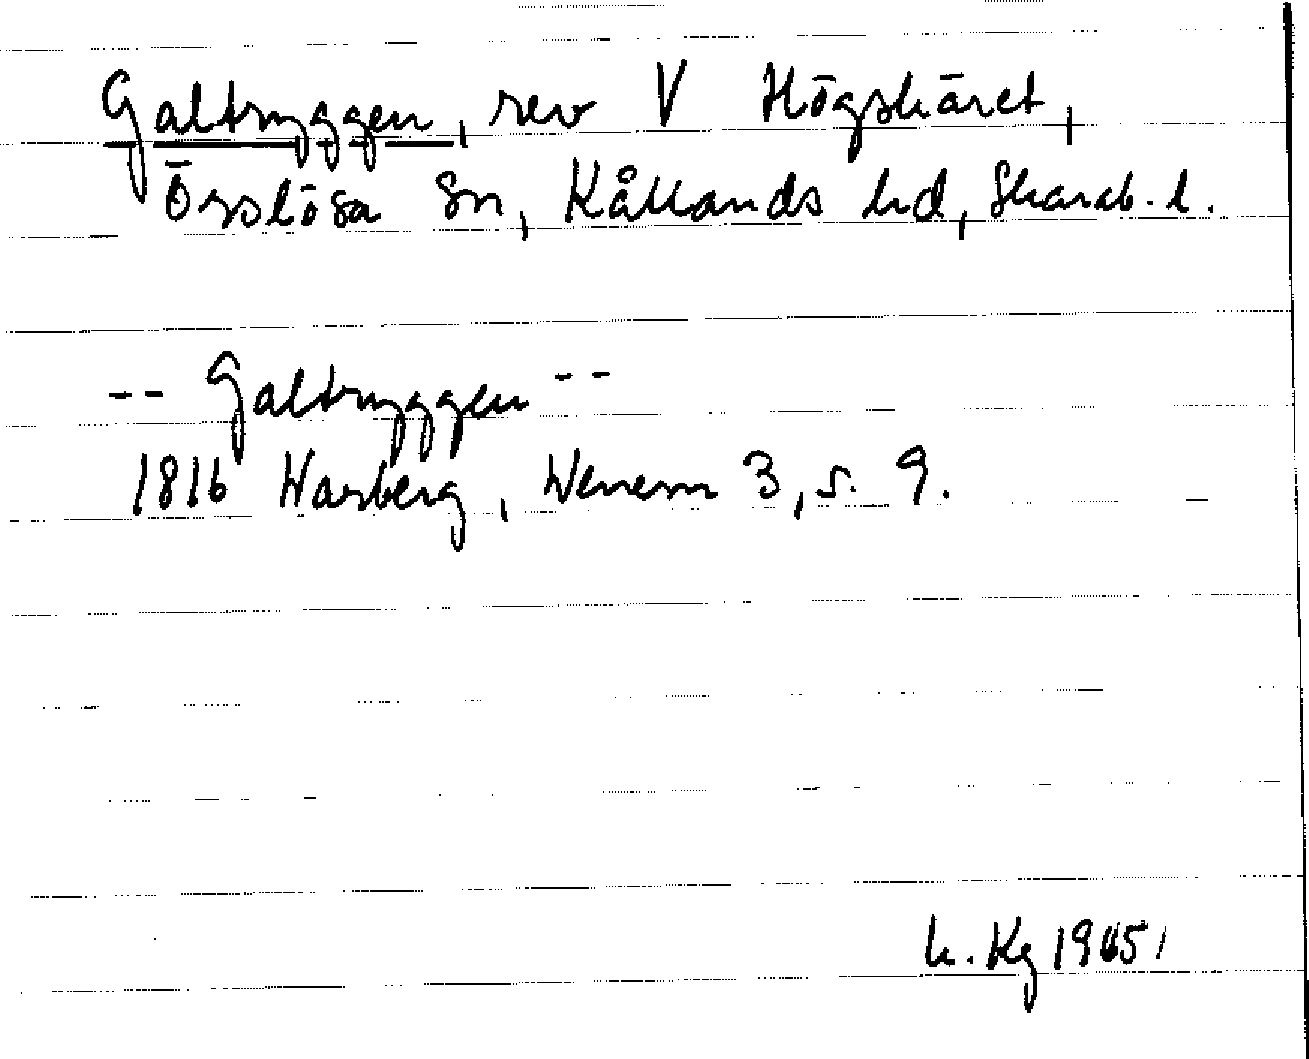 Galtryggen, rev V Högskäret,
Örslösa Sn, Kållands hd, Skarab. l.
-- Galtryggen --
1816 Warberg, Wenern 3, s. 9.
h. Kg 1965